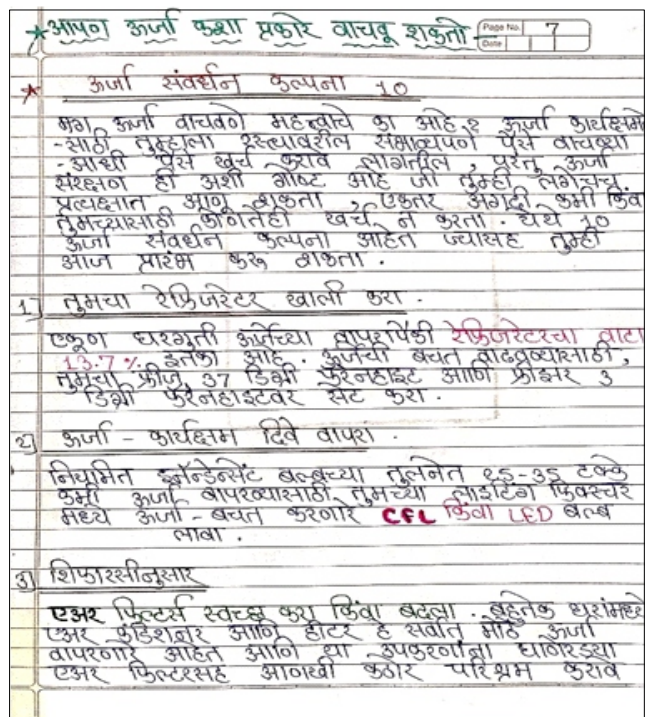 ★ आपण ऊर्जा कशा प्रकारे वाचवू शकतो -
Page No. 7
Date
★ ऊर्जा संवर्धन कल्पना 10
मग ऊर्जा वाचवणे महत्त्वाचे का आहे? ऊर्जा कार्यक्षमते
-साठी तुम्हाला रस्त्यावरील संभाव्यपणे पैसे वाचवण्या
-आधी पैसे खर्च करावे लागतील, परंतु ऊर्जा
संरक्षण ही अशी गोष्ट आहे जी तुम्ही लगेचच
प्रत्यक्षात आणू शकता, एकतर अगदी कमी किंवा
तुमच्यासाठी कोणतेही खर्च न करता. येथे 10
ऊर्जा संवर्धन कल्पना आहेत ज्यासह तुम्ही
आज प्रारंभ करू शकता.
1] तुमचा रेफ्रिजरेटर खाली करा.
एकूण घरगुती ऊर्जेच्या वापरापैकी रेफ्रिजरेटरचा वाटा
13.7% इतका आहे. ऊर्जेची बचत वाढवण्यासाठी,
तुमचा फ्रीज 37 डिग्री फॅरेनहाइट आणि फ्रीझर 3
डिग्री फॅरेनहाइटवर सेट करा.
2] ऊर्जा - कार्यक्षम दिवे वापरा.
नियमित इनॅन्डेन्सेंट बल्बच्या तुलनेत २५-35 टक्के
कमी ऊर्जा वापरण्यासाठी तुमच्या लाइटिंग फिक्स्चर
मध्ये ऊर्जा - बचत करणारे CFL किंवा LED बल्ब
लावा.
3] शिफारसीनुसार
एअर फिल्टर्स स्वच्छ करा किंवा बदला. बहुतेक घरांमध्ये
एअर कंडिशनर आणि हीटर हे सर्वात मोठे ऊर्जा
वापरणारे आहेत आणि या उपकरणांना घाणेरड्या
एअर फिल्टरसह आणखी कठोर परिश्रम करावे